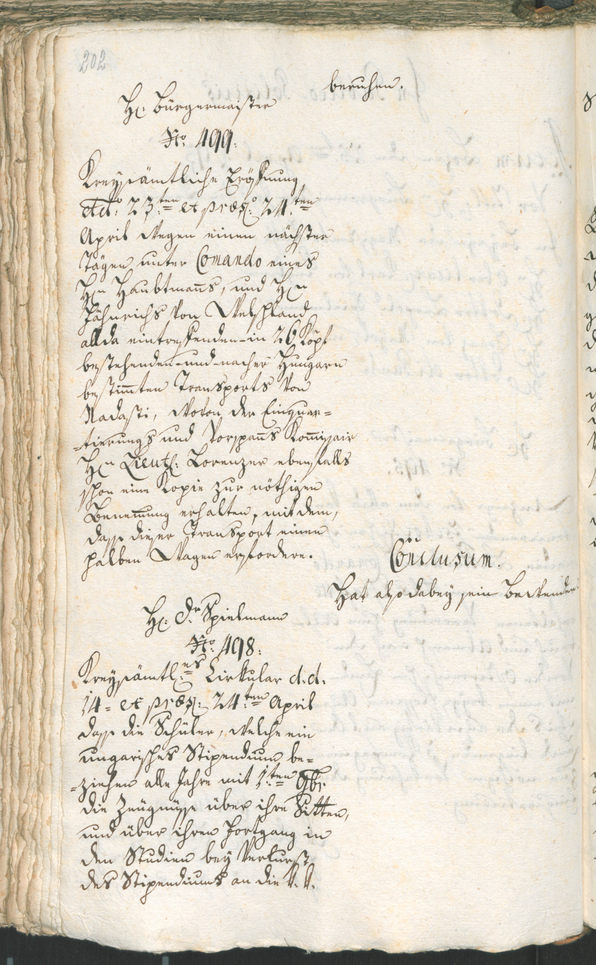 202
beruhen.
H: Burgermaister
No. 499:
Kreysämtliche Eröfnung
ddo: 23ten et præs: 24ten
April wegen einen nächster
Tägen unter Comando eines
H:n Haubtmans, und H:n
Fähnrichs von Welschland
allda eintreffenden in 26 Köpf
bestehenden und nacher Hungarn
bestimten Transports von
Nadasti, wovon der Einquar=
tierungs und Vorspans Komissair
H:n Lieut: Lorenzer ebenfalls
schon eine Kopie zur nöthigen
Benemung erhalten, mit dem,
dass dieser Transport einen
halben Wagen erfordere.
Conclusum.
Hat also dabey sein Bewenden
H: Dr Spielmann
No: 498:
Kreysämtl:es Cirkular d.d.
14= et præs: 24ten April
dass die Schüler, welche ein
ungarisches Stipendium be=
ziehen alle Jahre mit 1ten 9br:
die Zeugnüsse über ihre Sitten,
und über ihren Fortgang in
den Studien bey Verlurst
des Stipendiums an die V. Ö.